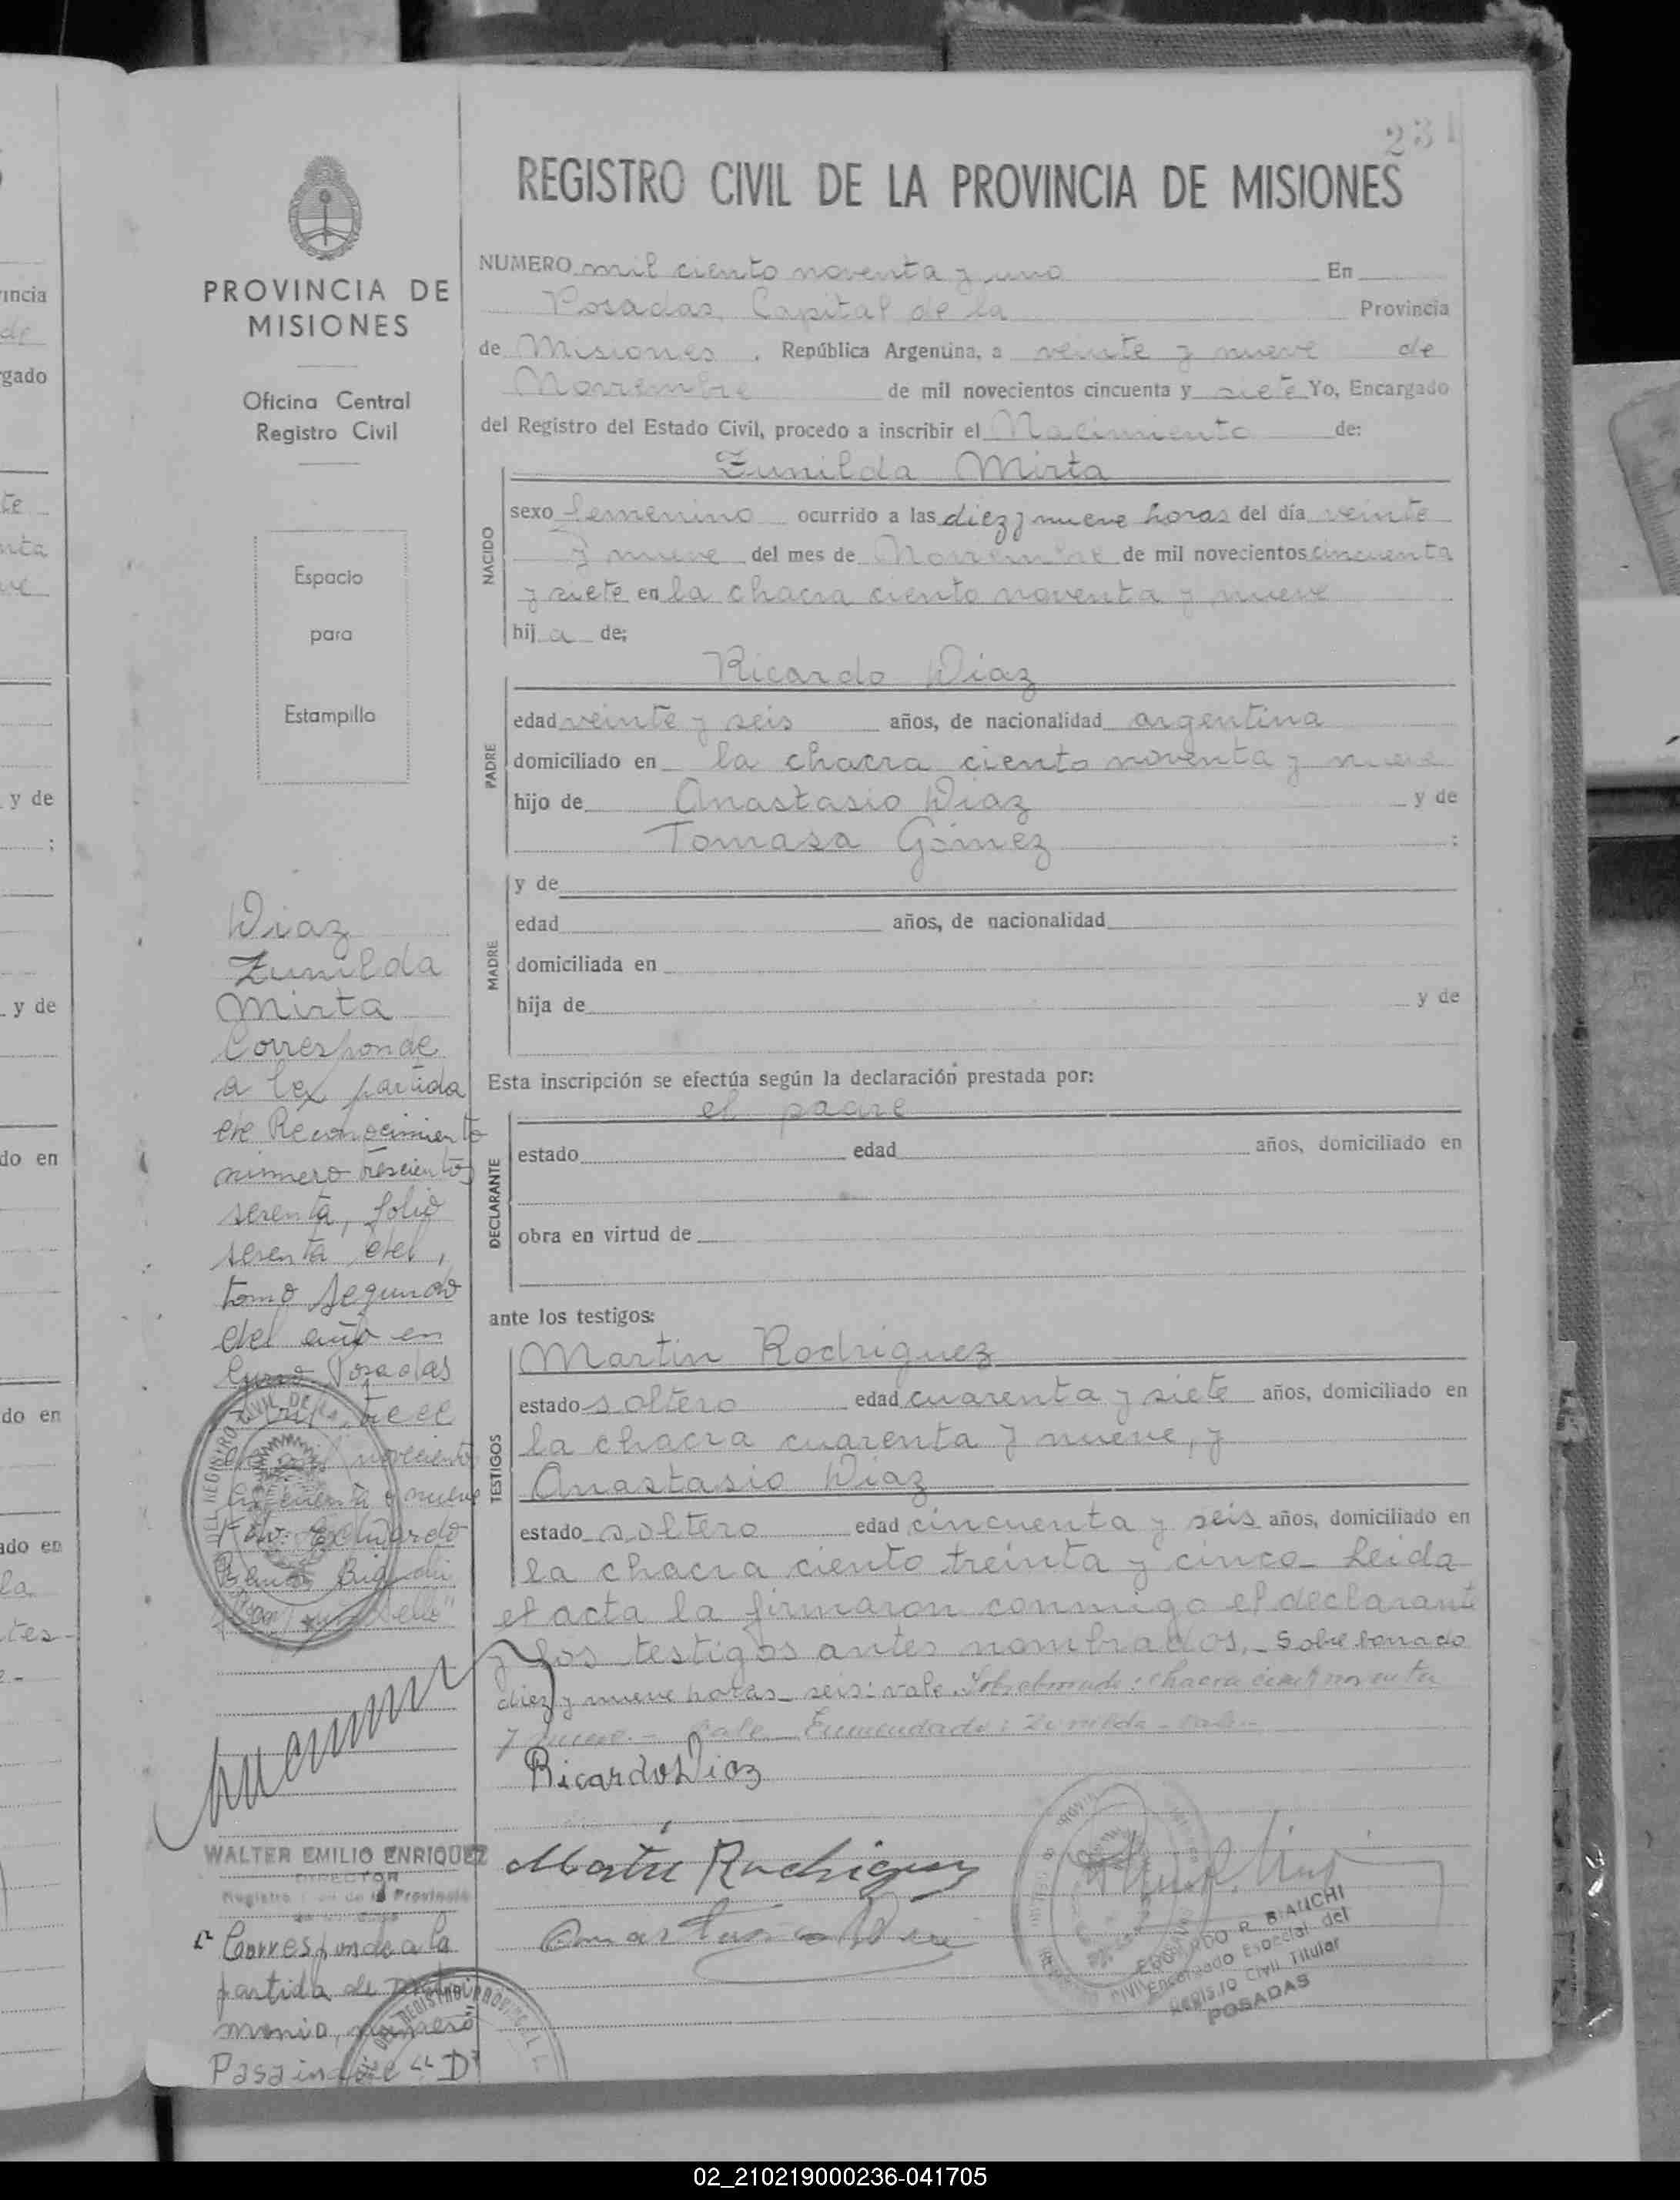 231
REGISTRO CIVIL DE LA PROVINCIA DE MISIONES
PROVINCIA DE
MISIONES
Oficina Central
Registro Civil
Espacio
para
Estampilla
NUMERO mil ciento noventa y uno En
Posadas, Capital de la Provincia
de Misiones, República Argentina, a veinte y nueve de
Noviembre de mil novecientos cincuenta y siete Yo, Encargado
del Registro del Estado Civil, procedo a inscribir el Nacimiento de:
Zunilda Mirta
NACIDO
sexo femenino ocurrido a las diez y nueve horas del día veinte
y nueve del mes de Noviembre de mil novecientos cincuenta
y siete en la chacra ciento noventa y nueve
hija de:
Ricardo Diaz
PADRE
edad veinte y seis años, de nacionalidad argentina
domiciliado en la chacra ciento noventa y nueve
hijo de Anastasio Diaz y de
Tomasa Gómez :
MADRE
y de
edad años, de nacionalidad
domiciliada en
hija de y de
Esta inscripción se efectúa según la declaración prestada por:
el padre
DECLARANTE
estado edad años, domiciliado en
obra en virtud de
ante los testigos:
Martin Rodriguez
TESTIGOS
estado soltero edad cuarenta y siete años, domiciliado en
la chacra cuarenta y nueve, y
Anastasio Diaz
estado soltero edad cincuenta y seis años, domiciliado en
la chacra ciento treinta y cinco Leida
el acta la firmaron conmigo el declarante
y los testigos antes nombrados. Sobre borrado
diez y nueve horas seis: vale. Sobreborrado: chacra ciento noventa
y nueve.- vale Enmendado: Zunilda - vale
Ricardo Diaz
Martin Rodriguez
Anastasio Diaz
BIANCHI
Encargado Especial del
Registro Civil Titular
POSADAS
Diaz
Zunilda
Mirta
Corresponde
a la partida
de Reconocimiento
número trescientos
sesenta, folio
sesenta del,
tomo segundo
del año en
curso Posadas
novecientos
cincuenta y nueve
Fdo: Eduardo
Bianchi
Sello"
WALTER EMILIO ENRIQUEZ
DIRECTOR
Registro Civil de la Provincia
Corresponde a la
partida de matri
monio, número
Pasa indice "D"
02_210219000236-041705